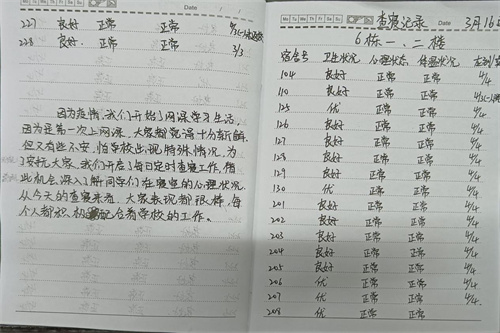 Mo Tu We Th Fr Sa Su
Date
227 良好 正常 正常
228 良好 正常 正常 3/3
因为疫情,我们开始了网课学习生活,
因为是第一次上网课,大家都觉得十分新鲜,
但又有些不安,怕学校出现特殊情况,为
了安抚大家,我们开启了每日定时查寝工作,借
此机会,深入了解同学们在寝室的心理状况,
从今天的查寝来看,大家表现都很棒,每
个人都积极配合着学校的工作。
Mo Tu We Th Fr Sa Su
Date
查寝记录 3月16
6栋一、二楼
宿舍号 卫生状况 心理状态 体温状况
104 良好 正常 正常 4/4
110 良好 正常 正常
125 优 正常 正常 4/4
126 良好 正常 正常 4/4
127 良好 正常 正常 4/4
128 良好 正常 正常 4/4
129 良好 正常 正常 4/4
130 优 正常 正常 4/4
201 良好 正常 正常 4/4
202 良好 正常 正常 4/4
203 良好 正常 正常 4/4
204 良好 正常 正常 4/4
205 良好 正常 正常 4/4
206 优 正常 正常 4/4
207 优 正常 正常 4/4
208 优 正常 正常 4/4